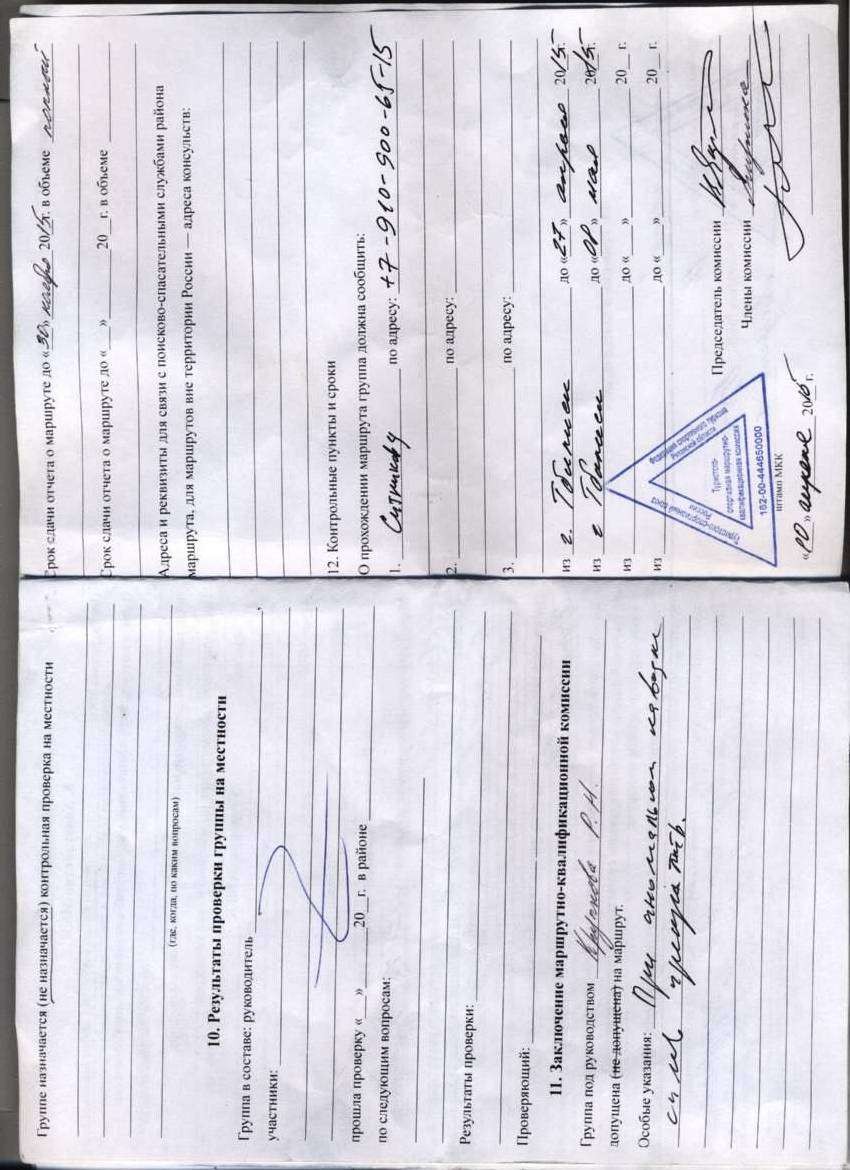 Группе назначается (не назначается) контрольная проверка на местности
(где, когда, по каким вопросам)
10. Результаты проверки группы на местности
Группа в составе: руководитель
участники:
прошла проверку «__» ______ 20__г. в районе
по следующим вопросам:
Результаты проверки:
Проверяющий:
11. Заключение маршрутно-квалификационной комиссии
Группа под руководством
допущена (не допущена) на маршрут.
Особые указания: При аномальном паводке
Срок сдачи отчета о маршруте до «30» ноября 2015г. в объеме полном
Срок сдачи отчета о маршруте до «__» ______ 20__г. в объеме
Адреса и реквизиты для связи с поисково-спасательными службами района
маршрута, для маршрутов вне территории России — адреса консульств:
12. Контрольные пункты и сроки
О прохождении маршрута группа должна сообщить:
1. Ситникову по адресу: +7-910-900-65-15
2. по адресу:
3. по адресу:
из г. Тбилиси до «27» апреля 2015г.
из г. Тбилиси до «08» мая 2015г.
из до «__» 20__ г.
из до «__» 20__ г.
Председатель комиссии
Члены комиссии
Туристско-спортивный союз России
Федерация спортивного туризма Рязанской области
Туристско-спортивная маршрутно-квалификационная комиссия
162-00-444650000
штамп МКК
«10» апреля 2015 г.